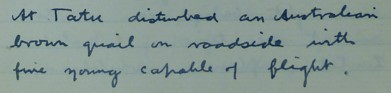 At Tatu disturbed an Australian
brown quail on roadside with
five young capable of flight.